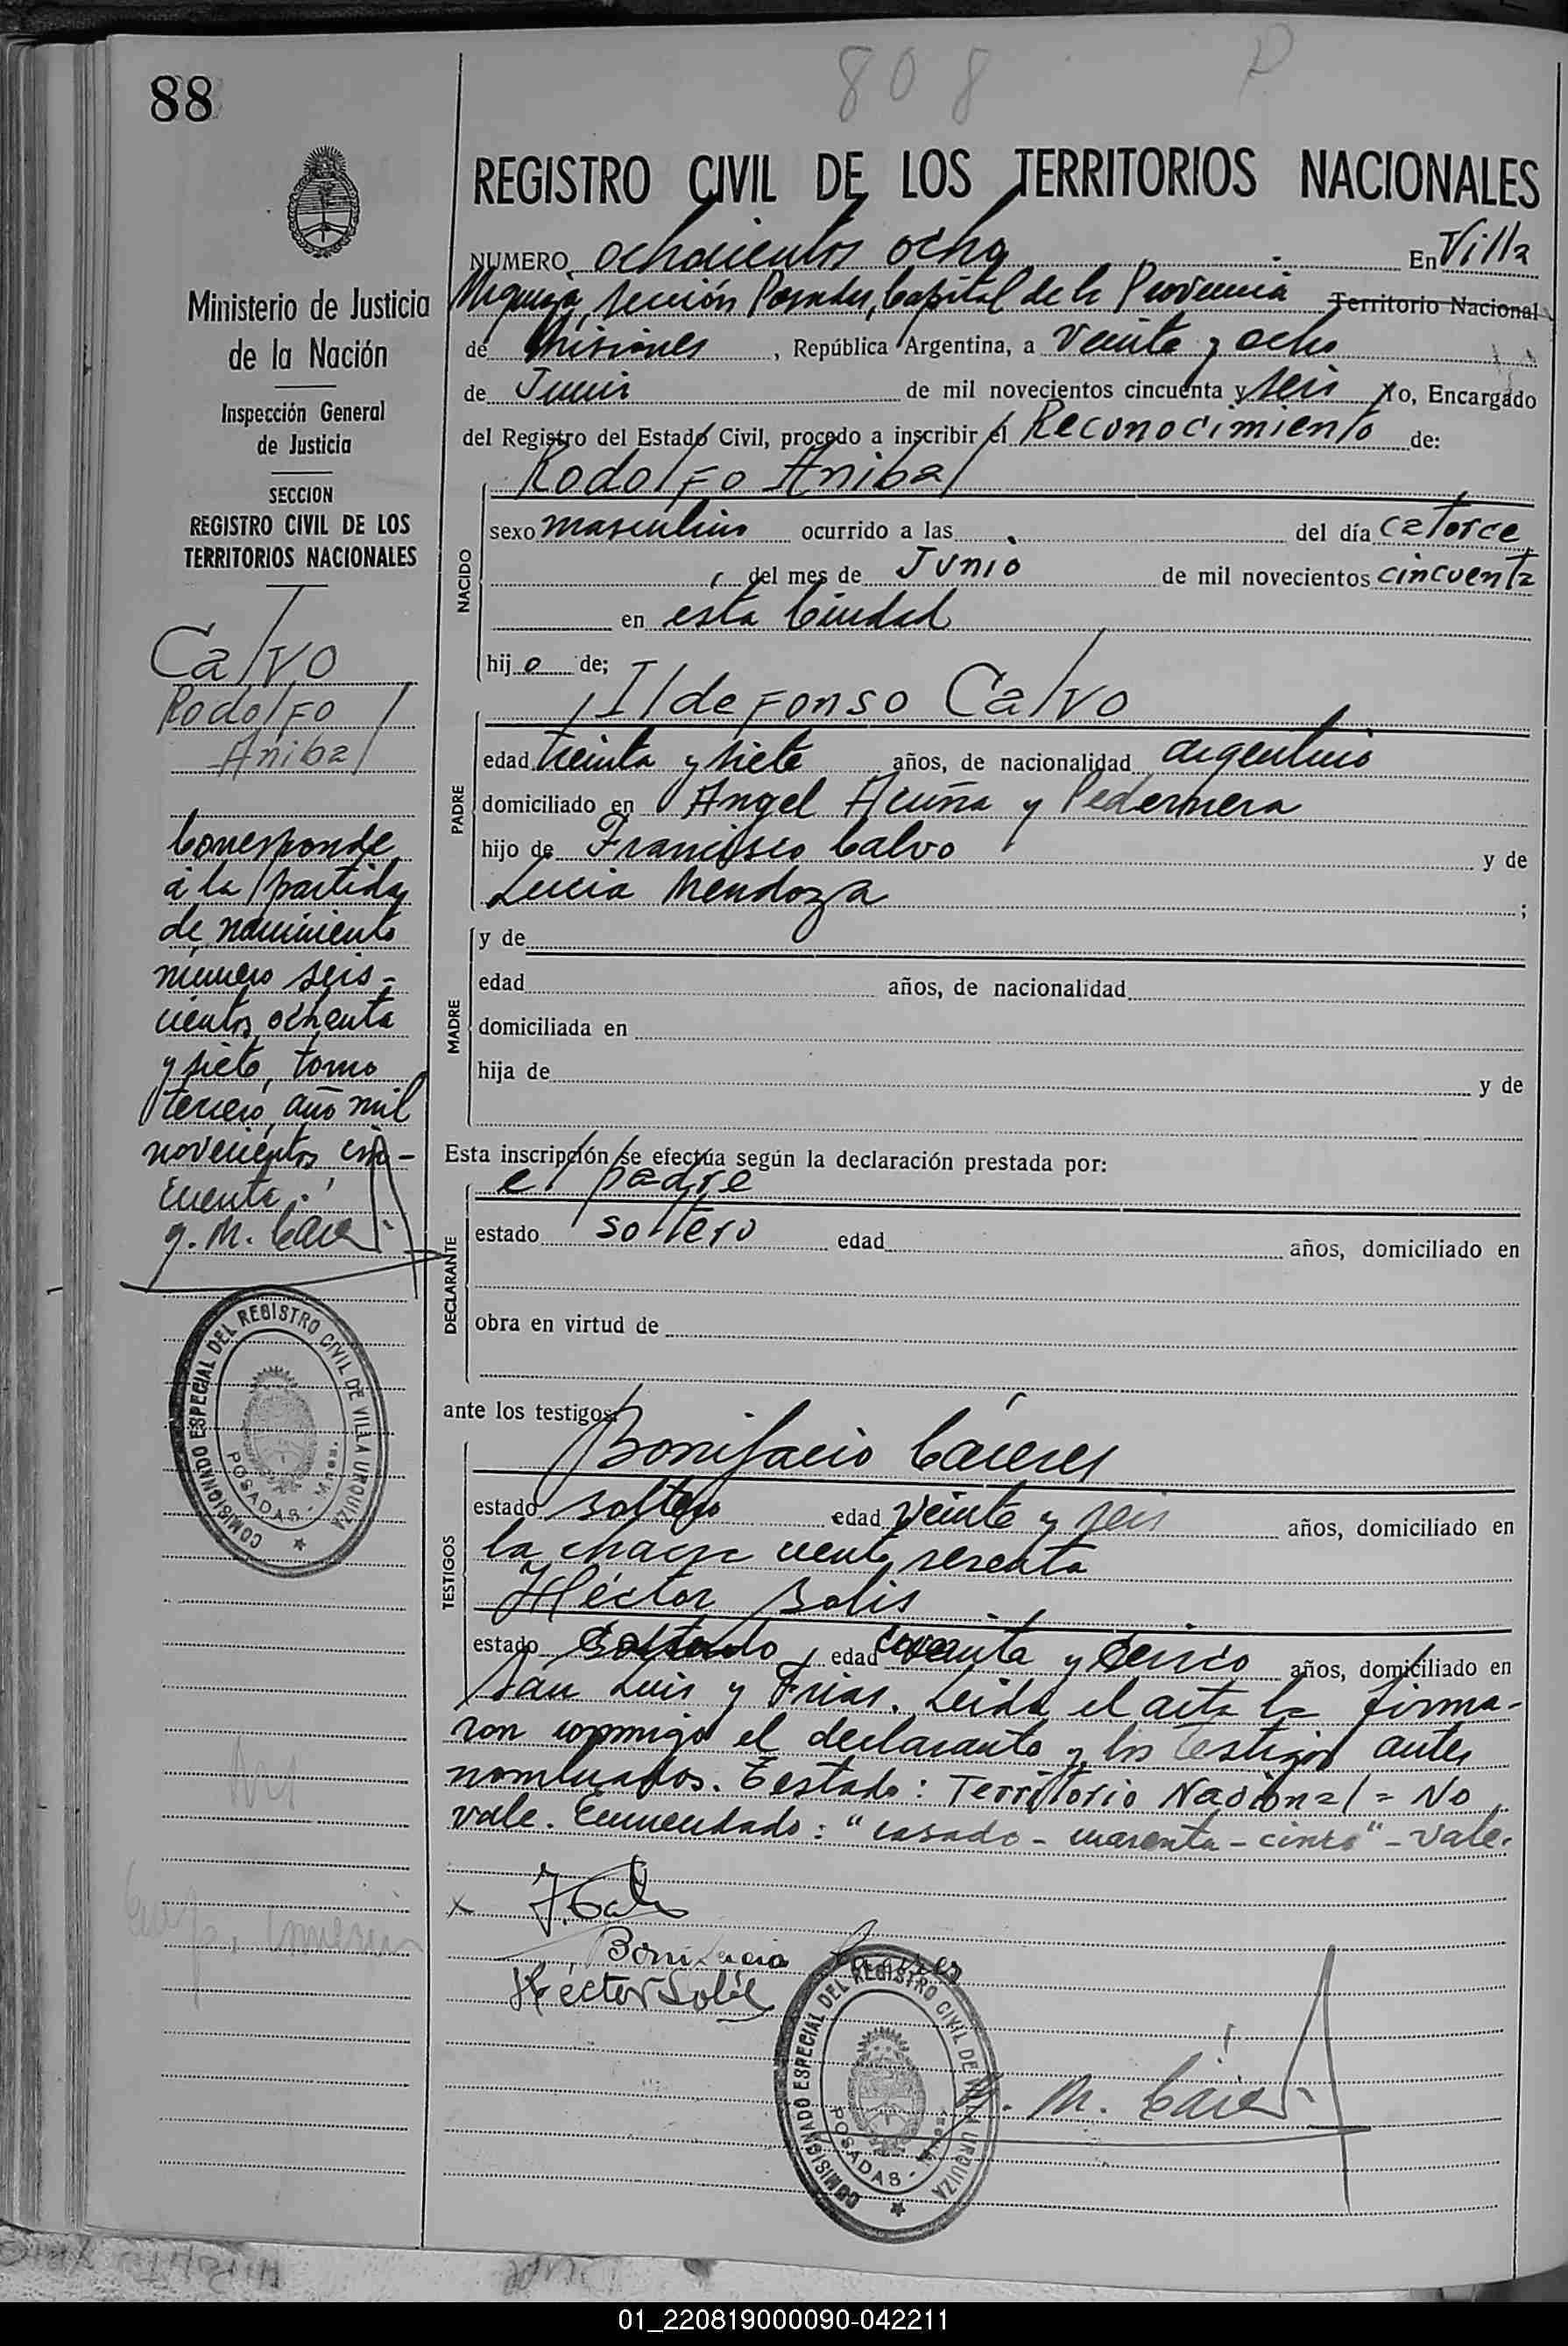 88
808
REGISTRO CIVIL DE LOS TERRITORIOS NACIONALES
NUMERO ochocientos ocho En Villa
Urquiza, sección Posadas, Capital de la Provincia Territorio Nacional
de Misiones, República Argentina, a veinte y ocho
de Junio de mil novecientos cincuenta y seis Yo, Encargado
del Registro del Estado Civil, procedo a inscribir el Reconocimiento de:
Rodolfo Anibal
NACIDO
sexo masculino ocurrido a las del día catorce
del mes de Junio de mil novecientos cincuenta
en esta Ciudad
hijo de;
Ildefonso Calvo
PADRE
edad treinta y siete años, de nacionalidad argentino
domiciliado en Angel Acuña y Pedernera
hijo de Francisco Calvo y de
Lucia Mendoza ;
MADRE
y de
edad años, de nacionalidad
domiciliada en
hija de y de
Esta inscripción se efectúa según la declaración prestada por:
el padre
DECLARANTE
estado soltero edad años, domiciliado en
obra en virtud de
ante los testigos:
Bonifacio Cáceres
TESTIGOS
estado soltero edad veinte y seis años, domiciliado en
la chacra ciento sesenta
Héctor Solis
estado casado edad cuarenta y cinco años, domiciliado en
San Luis y Frias. Leida el acta la firma-
ron conmigo el declarante y los testigos antes
nombrados. Testado: Territorio Nacional = No
vale. Enmendado: "casado - cuarenta - cinco" - Vale.
Bonifacio Caceres
Héctor Solis
COMISIONADO ESPECIAL DEL REGISTRO CIVIL DE VILLA URQUIZA
POSADAS - Mnes.
Ministerio de Justicia
de la Nación
Inspección General
de Justicia
SECCION
REGISTRO CIVIL DE LOS
TERRITORIOS NACIONALES
Calvo
Rodolfo
Anibal
Corresponde
a la partida
de nacimiento
número seis-
cientos ochenta
y siete, tomo
tercero, año mil
novecientos cin-
cuenta.
COMISIONADO ESPECIAL DEL REGISTRO CIVIL DE VILLA URQUIZA
POSADAS - Mnes.
01_220819000090-042211